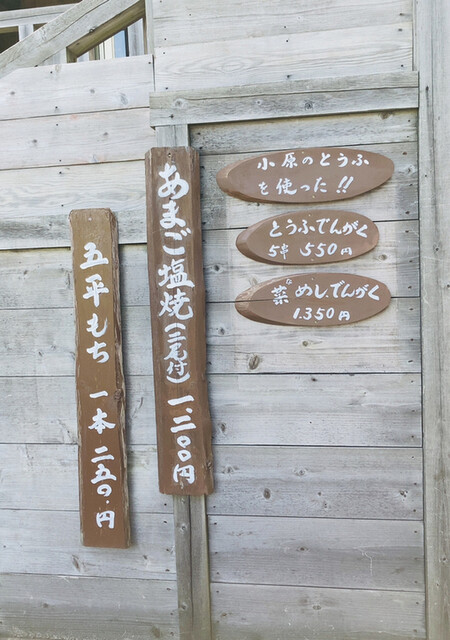 小原のとうふ
を使った!!
とうふでんがく
5串 550円
な
菜めし.でんがく
1.350円
あまご塩焼(二尾付)一、二〇〇円
五平もち 一本 二五〇円